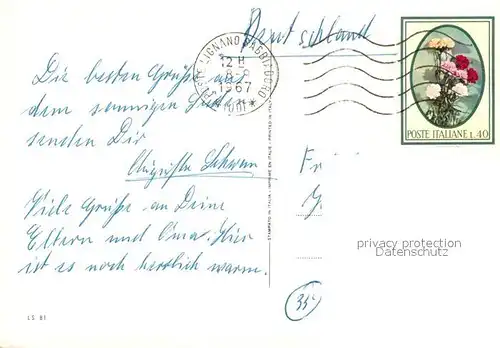 Deutschland
LIGNANO SABBIADORO
12 H
8-8
1967
POSTE ITALIANE L.40
Die besten Grüße aus
dem sonnigen Süden
senden Dir
Viele Grüße an Deine
Eltern und Oma. Hier
ist es noch herrlich warm.
Fr
privacy protection
Datenschutz
354
LS 81